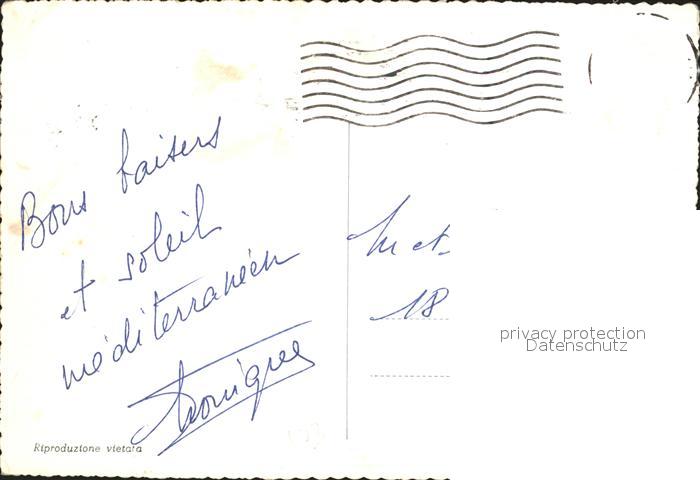 Bons baisers
et soleil
méditerranéen
Riproduzione vietata
M et
18
privacy protection
Datenschutz